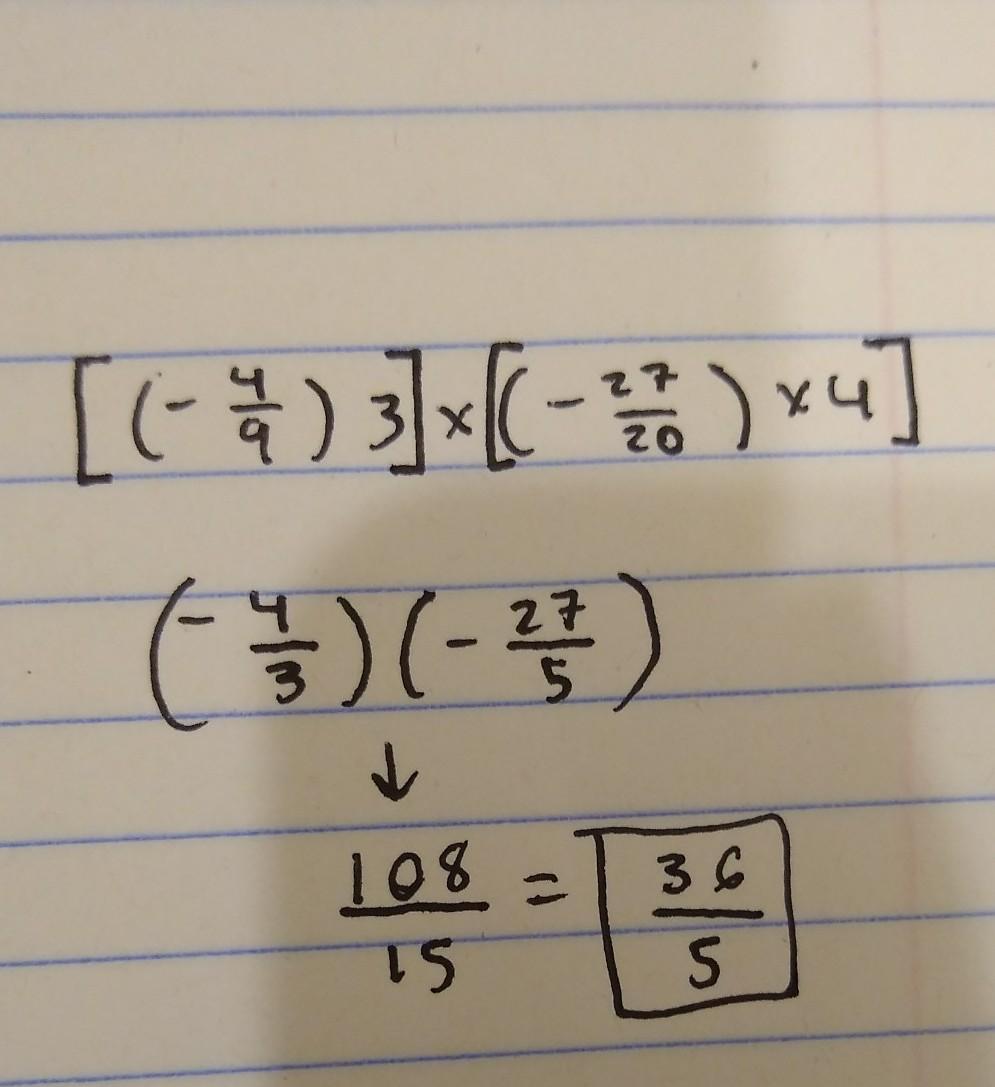 [(-4/9) 3] x [(-27/20) x 4]
(-4/3)(-27/5)
↓
108/15 = 36/5